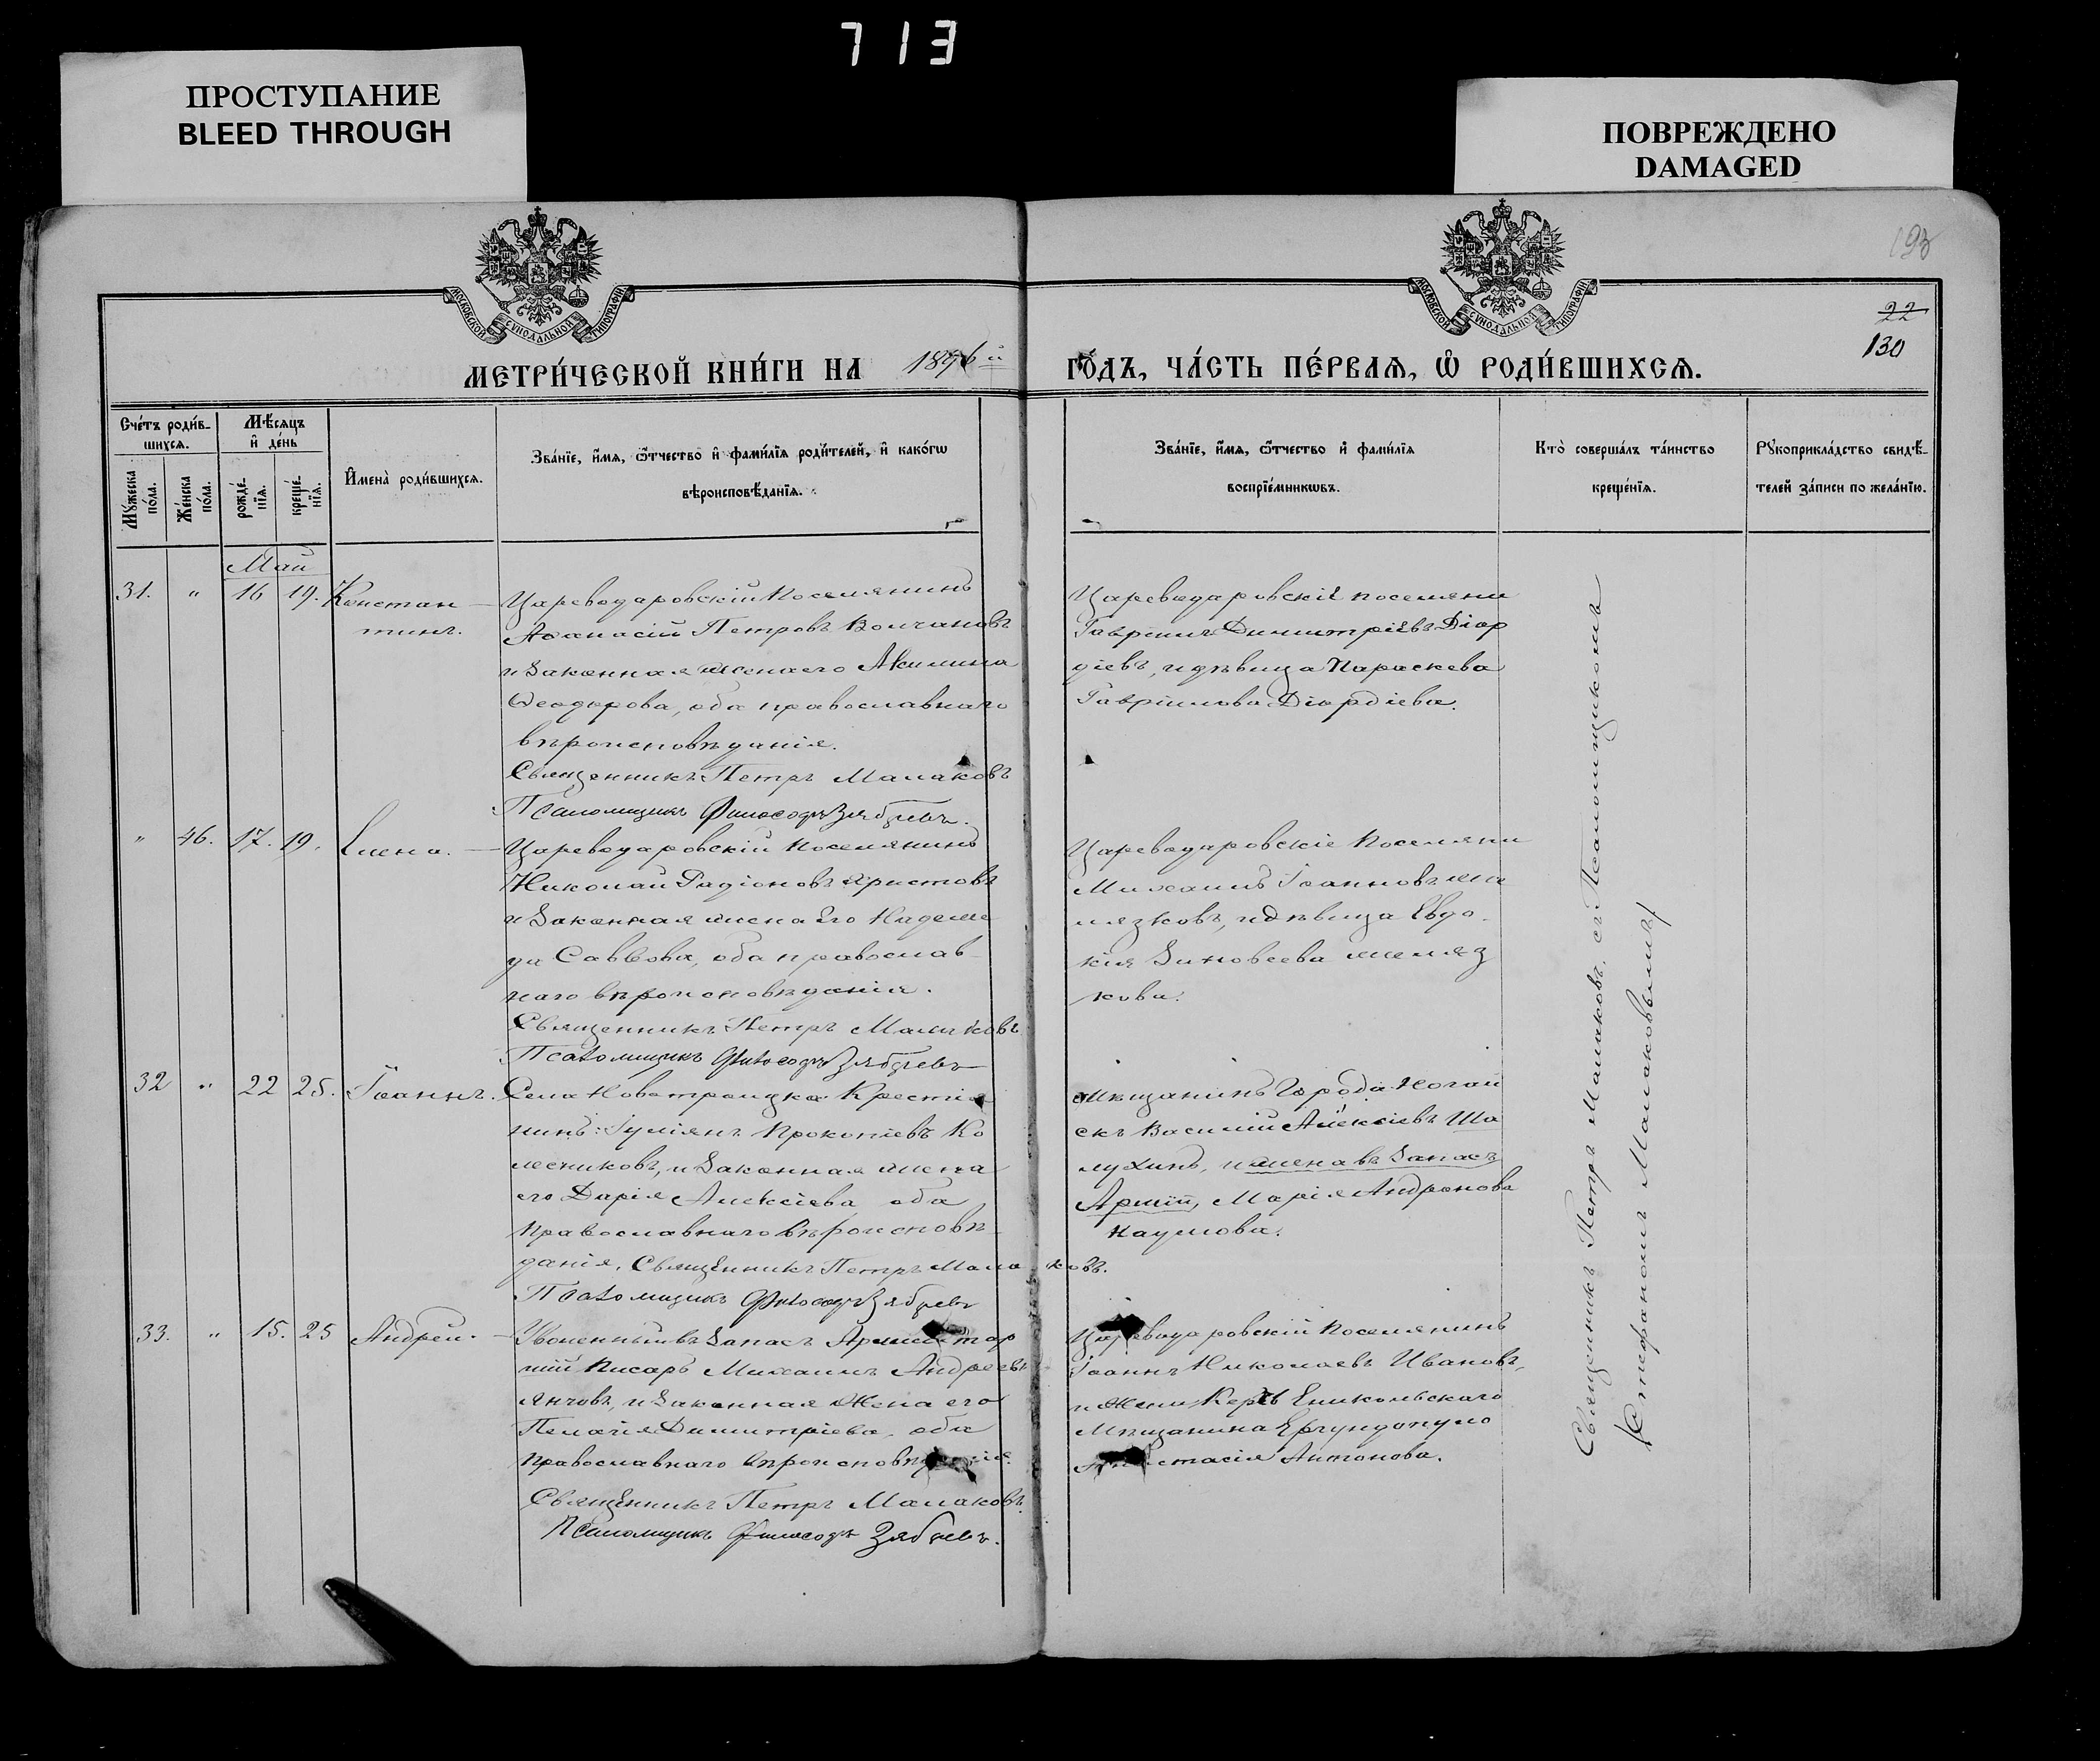 713
ПРОСТУПАНИЕ
BLEED THROUGH
ПОВРЕЖДЕНО
DAMAGED
МОСКОВСКОЙ СУНОДАЛЬНОЙ ТИПОГРАФІИ
МОСКОВСКОЙ СУНОДАЛЬНОЙ ТИПОГРАФІИ
193
22
130
МЕТРИ́ЧЕСКОЙ КНИ́ГИ НА 1896й ГО́ДЪ, ЧА́СТЬ ПЕ́РВАѦ, Ѡ҆ РОДИ́ВШИХСѦ.
Сче́тъ роди́в-
шихсѧ.
Мѣ́сяцъ
и҆ де́нь
Мꙋ́жеска
по́ла.
Же́нска
по́ла.
рожде́-
нїѧ.
креще́-
нїѧ.
И҆мена̀ роди́вшихсѧ.
Зва́нїе, и҆́мѧ, ѻ҆́тчество и҆ фами́лїѧ роди́телей, и҆ како́гѡ
вѣроисповѣ́данїѧ.
Зва́нїе, и҆́мѧ, ѻ҆́тчество и҆ фами́лїѧ
воспрїе́мникѡвъ.
Кто̀ соверша́лъ та́инство
креще́нїѧ.
Рꙋкоприкла́дство свидѣ́-
телей за́писи по жела́нїю.
Май
31. " 16 19. Констан
тинъ.
Цареводаровскій Поселянинъ
Аѳанасій Петровъ Волчановъ
и Законная жена его Акилина
Ѳеодорова, оба православнаго
вѣроисповѣданія.
Священникъ Петръ Малаковъ
Псаломщикъ Философъ Зябревъ.
Цареводаровскіе поселяни
Гавріилъ Димитріевъ Діор
діевъ, и дѣвица Параскева
Гавріилова Діордіева.
" 46. 17. 19. Елена.
Цареводаровскій Поселянинъ
Николай Радіоновъ Христовъ
и Законная жена Его Надеж
да Саввова, оба православ
наго вѣроисповѣданія.
Священникъ Петръ Малаковъ
Псаломщикъ Философъ Зябревъ
Цареводаровскіе Поселяни
Михаилъ Іоанновъ Же
лязковъ, и дѣвица Евдо-
кія Зиновеева Желяз
кова.
32 " 22 25. Іоаннъ.
Села Новотроицка Крестія
нинъ: Іуліянъ Прокопіевъ Ко
лесниковъ, и Законная жена
его Дарія Алексіева оба
Православнаго вѣроисповѣ
данія. Священникъ Петръ Малаковъ.
Псаломщикъ Философъ Зябревъ
Мѣщанинъ Города Ногай
скъ Василій Алексіевъ Ша
лухинъ, и жена въ Запасъ
Арміи, Марія Андронова
Наумова.
33. " 15. 25 Андрей.
Уволенный въ Запасъ Арміи
шій Писарь Михаилъ Андреевъ
Янчовъ, и Законная Жена его
Пелагія Димитріева, оба
Православнаго вѣроисповѣданія.
Священникъ Петръ Малаковъ.
Псаломщикъ Философъ Зябревъ.
Цареводаровскій Поселянинъ
Іоаннъ Николаевъ Ивановъ,
и Жена Керчь Еникольскаго
Мѣщанина
Анастасія Антонова.
Священникъ Петръ Малаковъ, съ Псаломщикомъ
Стефаномъ Малаковымъ